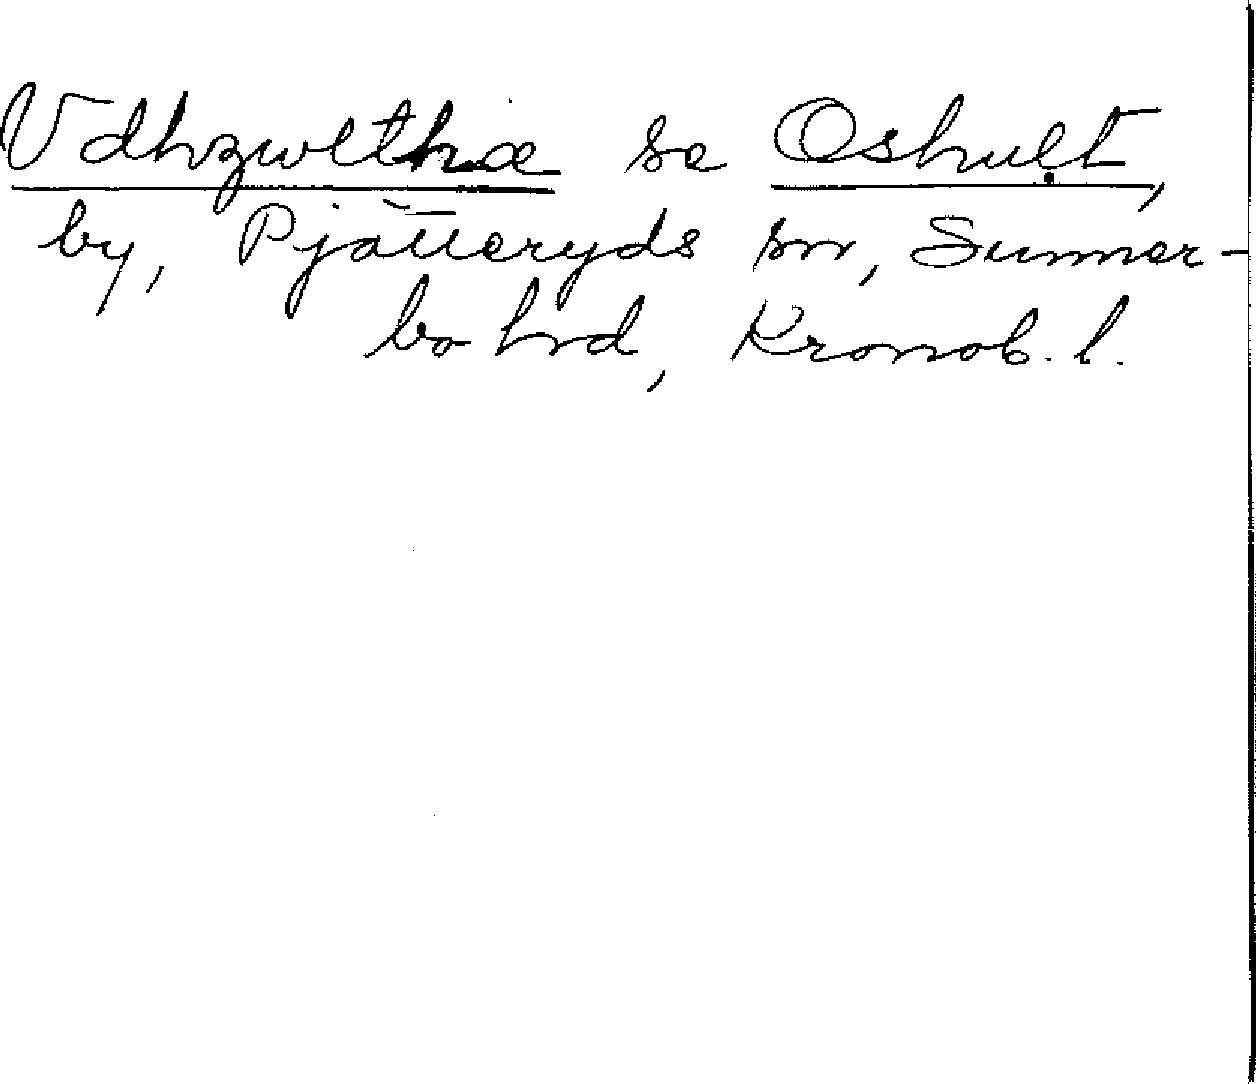 Vdhzwlthæ se Oshult,
by, Pjätteryds sn, Sunner-
bo hd, Kronob. l.